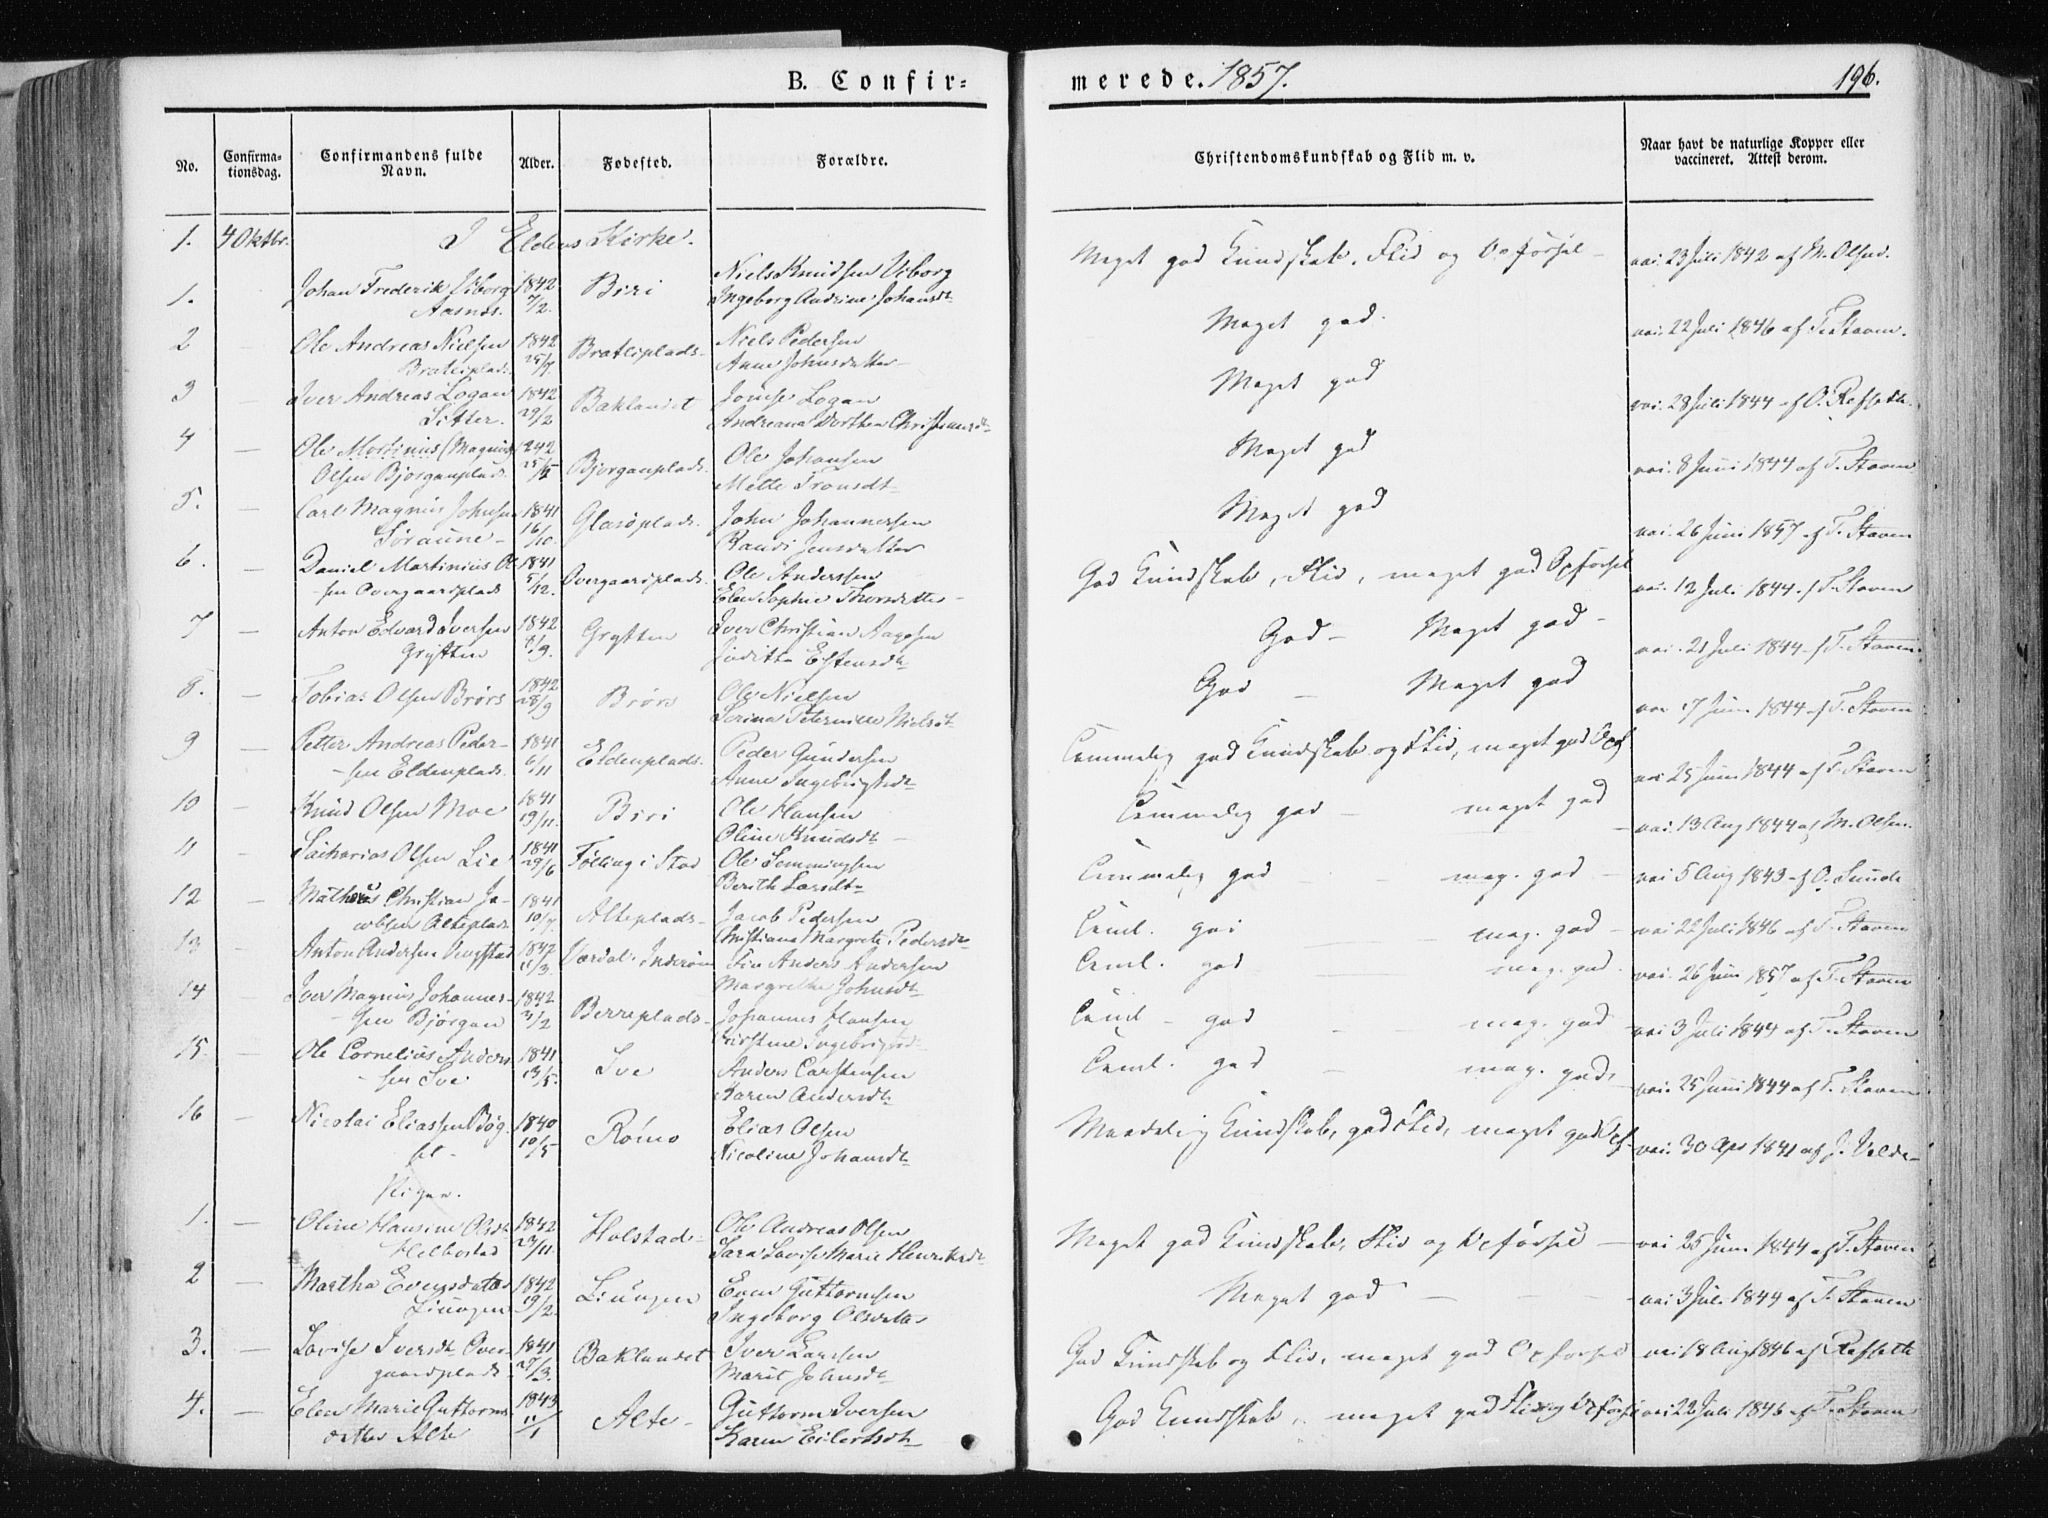 B. Confir=
merede. 1857.
196.
No.
Confirma-
tionsdag.
Confirmandens fulde
Navn.
Alder.
Fødested.
Forældre.
Christendomskundskab og Flid m. v.
Naar havt de naturlige Kopper eller
vaccineret. Attest derom.
1. 4 Oktbr. I Eldens Kirke.
Meget god Kundskab, Flid og Opførsel - vai. 23 Juli 1842 af M. Olsen.
1. Johan Frederik Viborg 1842 Biri Niels Knudsen Viborg
Aasnes. 7/2. Ingeborg Andrine Johansdt
Meget god. vai. 22 Juli 1846 af T. Staven.
2 - Ole Andreas Nielsen 1842 Bratliplads- Niels Pedersen
Bratliplads. 25/7. Anne Johnsdatter -
Meget god vai. 28 Juli 1844 af O. Rafseth.
3 - Iver Andreas Logan 1842 Baklandet Logan
Sitter. 29/2 Andreana Dorthea Christiansdt
Meget god vai. 8 Juni 1844 af T. Staven
4 - Ole Mortinius (Magnus) 1842 Bjørganplads. Ole Johansen
Olsen Bjørganplads. Mette Tronsdt
Meget god vai. 26 Juni 1857 af T. Staven
5. - Carl Magnus Johnsen 1841 Glasøplads. John Johannessen
Søraune - 16/10. Randi Jensdatter
God Kundskab, Flid, meget god Opførsel vai. 12 Juli 1844 af T. Staven
6. - Daniel Martinius Ol 1841 Overgaardplads. Ole Anderssen
-sen Overgaardplads 5/12. Elen Sophie Thorsdatter -
God - Meget god - vai. 21 Juli 1844 af T. Staven.
7 - Anton Edvard Iversen 1842 Grytten Iver Christian Aagesen
Grytten Juditha Estensdt
God - Meget god vai 17 Juni 1844 af T. Staven
8. - Tobias Olsen Brørs 1842 Brørs Ole Nielsen
28/9 Serina Peternille Nielsdt
Temmelig god Kundskab og Flid, meget god Opf vai 25 Juni 1844 af T. Staven
9 - Petter Andreas Peder- 1841 Eldenplads. Peder Gundersen
-sen Eldenplads. 6/11 Anne Ingebrigtsdt
Temmelig god - meget god - vai. 13 Aug 1844 af M. Olsen.
10 - Knud Olsen Moe 1841 Biri Ole Hansen
19/11. Oline Knudsdt -
Temmelig god - meg. god - vai 5 Aug 1843 af O. Sunde
11 - Sacharias Olsen Lie 1841 Følling i Stod Ole Lemmingsen
29/6 Berith Larsdt
Teml. god - meg. god - vai 22 Juli 1846 af T. Staven
12 - Matheus Christian Ja- 1841 Alteplads- Jacob Pedersen
cobsen Alteplads 10/7. Christiana Margrete Pedersdt
Teml. god - meg. god. vai. 26 Juni 1857 af T. Staven
13 - Anton Andersen 1842 Værdal. Inderøen Anders Andersen
11/3. Margrethe Johnsdt
Teml - god - meg. god - vai 3 Juli 1844 af T. Staven
14 - Iver Magnus Johannes- 1842 Berreplads- Johannes Hansen
-sen Bjørgan 3/2 Kirstine Ingebrigtsdt
Teml. god - meg. god, vai. 25 Juni 1844 af T. Staven
15. - Ole Cornelius Anders 1841 Sve Anders Carstensen
-sen Sve 13/5. Karen Andersdt
Maadelig Kundskab, god Flid, meget god Opf. vai. 30 Apr 1841 af J. Velde-
16 - Nicolai Eliassen Bøg- 1840 Rømo Elias Olsen
10/5 Nicoline Johansdt
Piger.
1. - Oline Hansine Olsdt 1842 Holstad- Ole Andreas Olsen
Helbostad 29/11. Sara Lovise Marie Henriksdt
Meget god Kundskab, Flid og Opførsel - vai 25 Juni 1844 af T. Staven
2 - Martha Evensdatter 1842 Liungen Even Guttormsen
Liungen 19/2. Ingeborg Olsdatter
Meget god - - - vai 3 Juli 1844 af T. Staven
3. - Lovise Iversdt Over- 1841 Baklandet Iver Larssen
gaardplads Marit Johnsdt
God Kundskab og Flid, meget god Opførsel vai 18 Aug 1846 af Rafseth
4. - Elen Marie Guttorms- 1843 Alte- Guttorm Iversen
datter Alte 11/1 Karen Eilertsdt
God Kundskab, meget god Flid og Opførsel vai 22 Juli 1846 af T. Staven